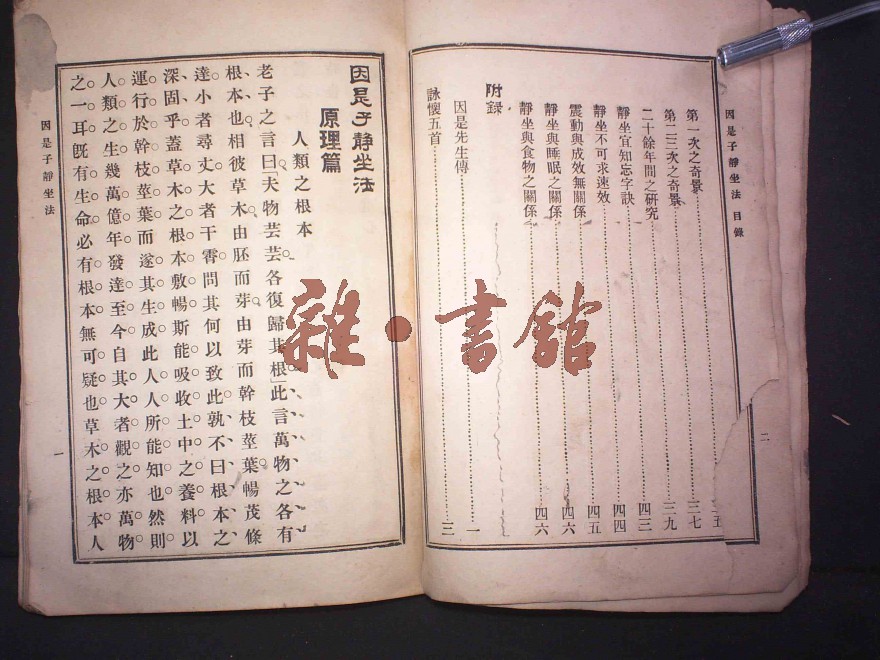 因是子靜坐法 目錄
二
三五
第一次之奇景 三七
第二三次之奇景 三九
二十餘年間之研究 四三
靜坐宜知忘字訣 四四
靜坐不可求速效 四五
震動與成效無關係 四六
靜坐與睡眠之關係 四六
靜坐與食物之關係 四六
附錄
因是先生傳 一
詠懷五首 三
因是子靜坐法
原理篇
人類之根本
老子之言曰「夫物芸芸各復歸其根」此言萬物之各有
根本也相彼草木由胚而芽由芽而幹枝莖葉暢茂條
達小者尋丈大者干霄問其何以致此孰不曰根本之
深固乎蓋草木之根本敷暢斯能吸收土中之養料以
運行於幹枝莖葉而遂其生成此人人所能知也然則
人類之生幾萬億年發達至今自其大者觀之亦萬物
之一耳既有生命必有根本無可疑也草木之根本人
因是子靜坐法
一
雜·書館